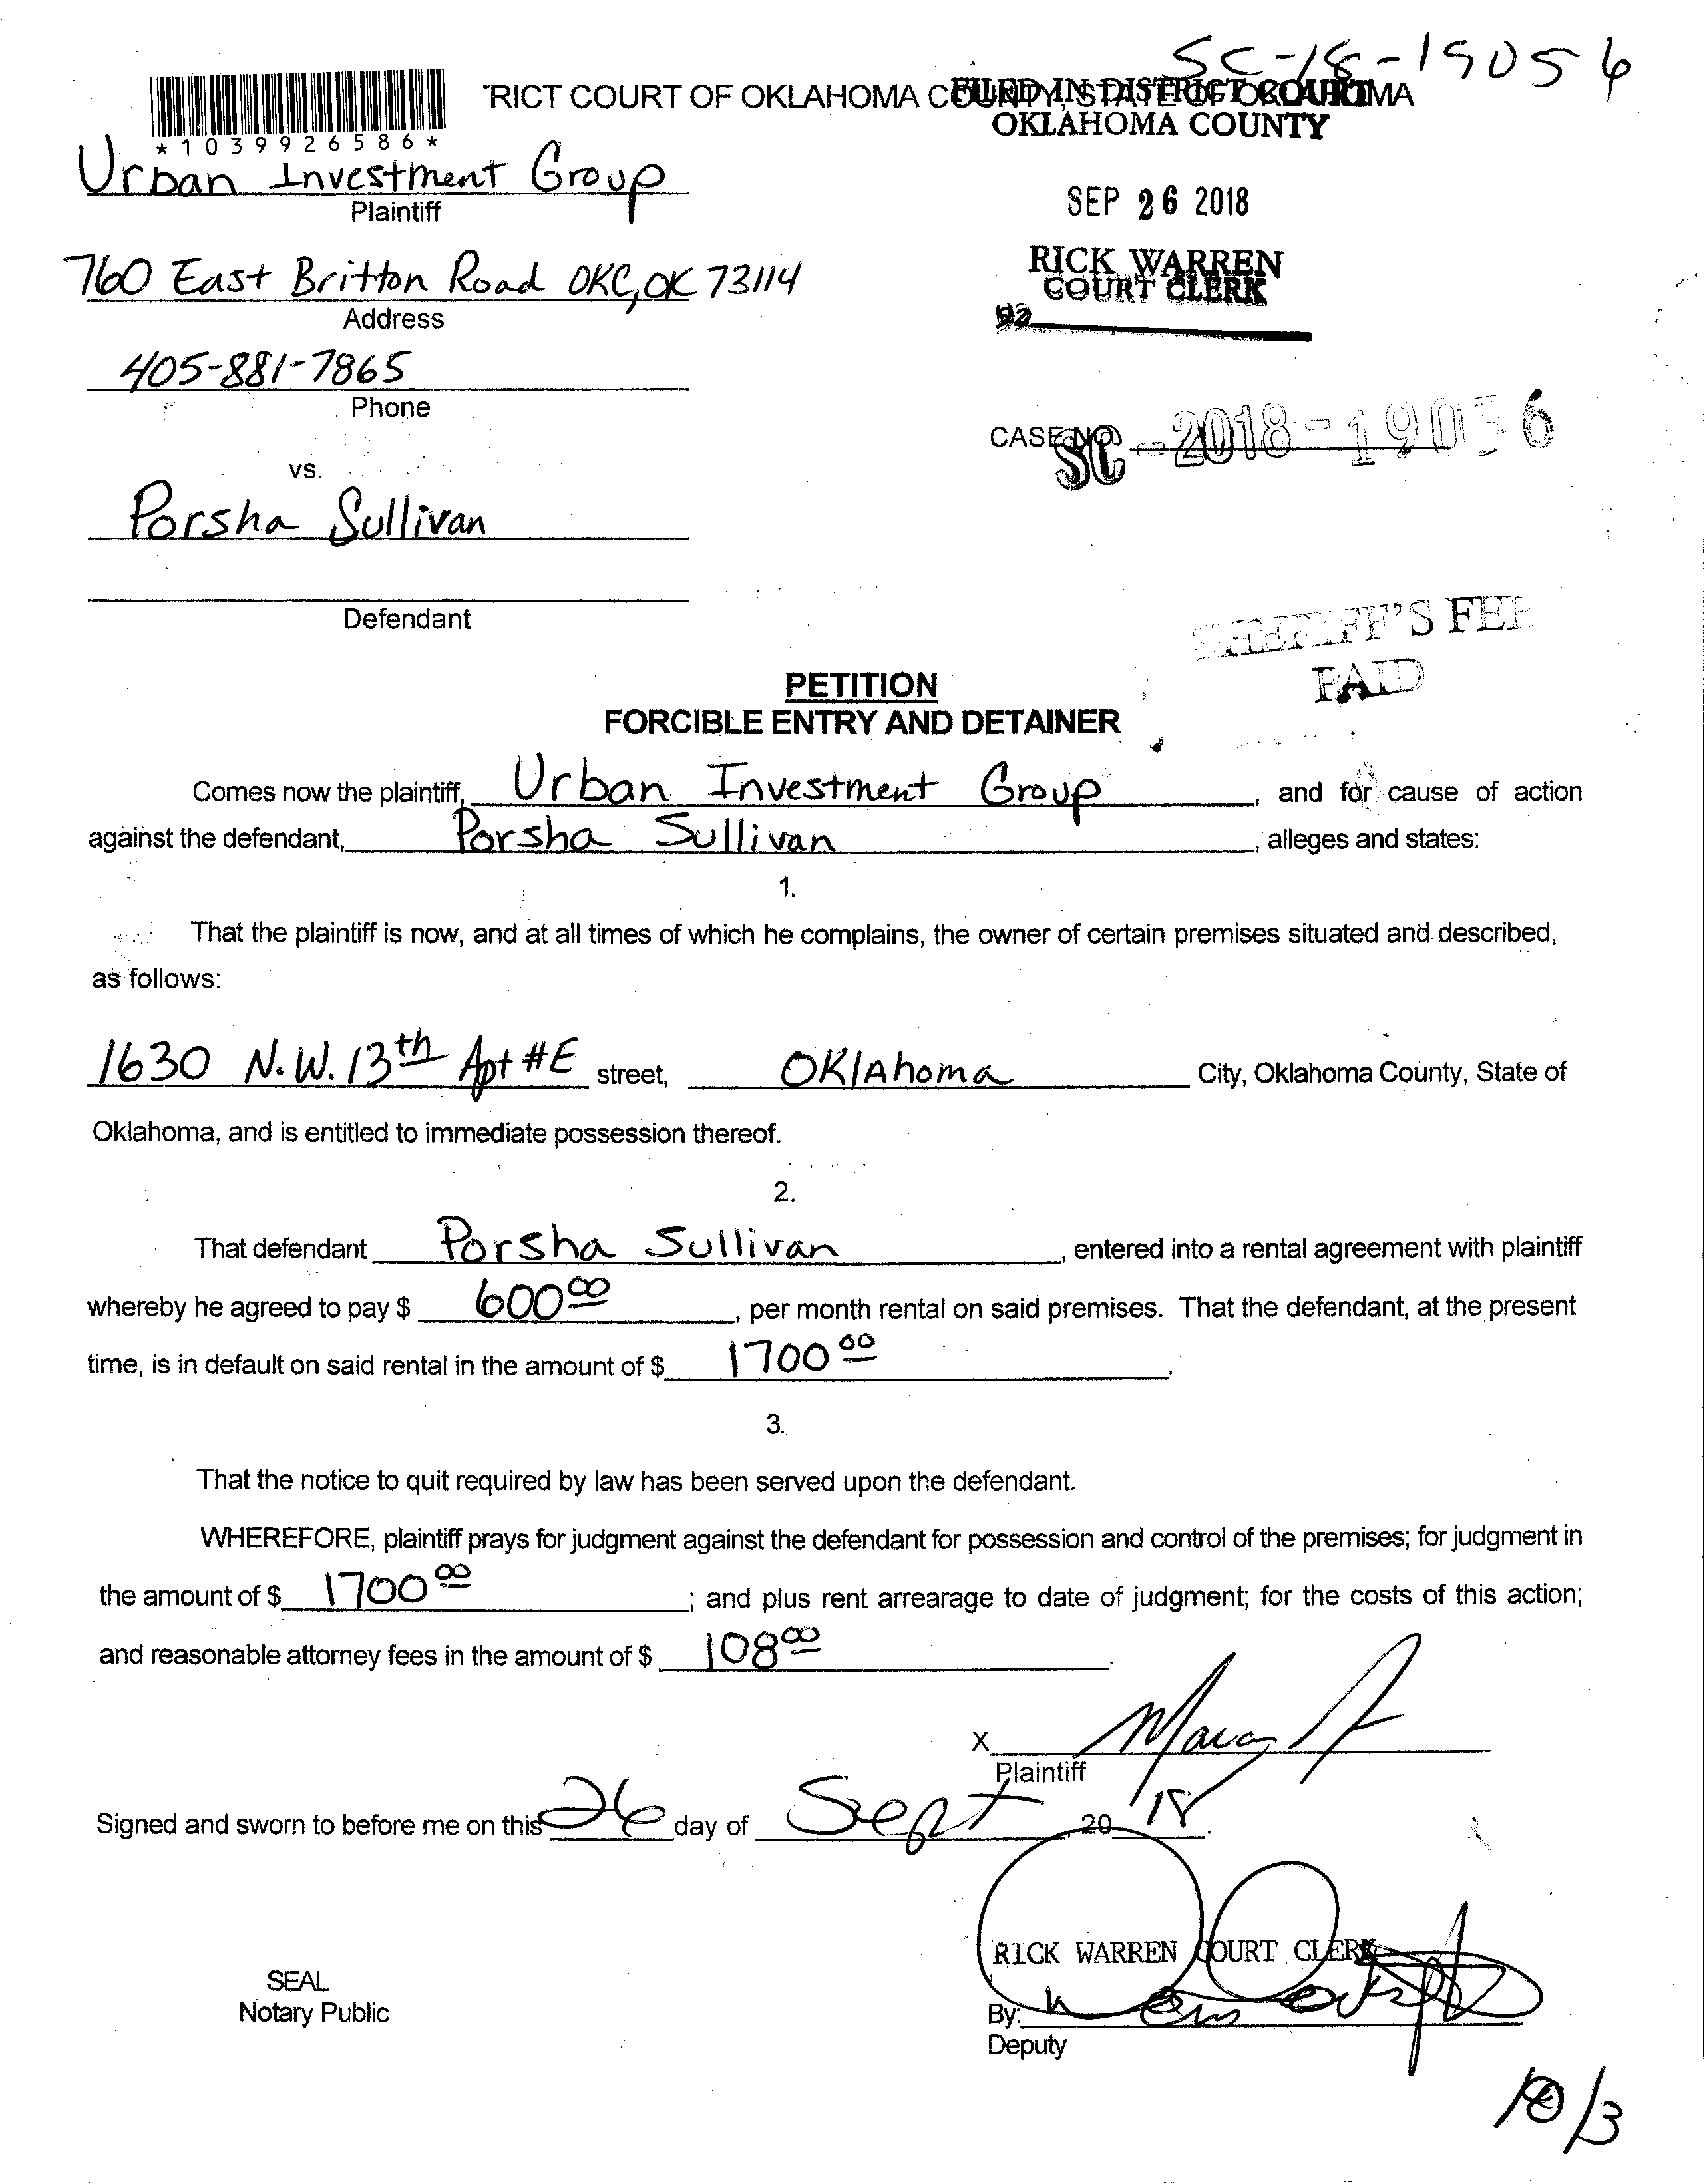 SC-18-19056
RICT COURT OF OKLAHOMA COUNTY, STATE OF OKLAHOMA
FILED IN DISTRICT COURT
OKLAHOMA COUNTY
*1039926586*
Urban Investment Group
Plaintiff
SEP 26 2018
760 East Britton Road OKC, OK 73114
Address
RICK WARREN
COURT CLERK
405-881-7865
Phone
CASE NO.
SC-2018-19056
vs.
Porsha Sullivan
Defendant
SHERIFF'S FEE
PAID
PETITION
FORCIBLE ENTRY AND DETAINER
Comes now the plaintiff, Urban Investment Group, and for cause of action
against the defendant, Porsha Sullivan, alleges and states:
1.
That the plaintiff is now, and at all times of which he complains, the owner of certain premises situated and described,
as follows:
1630 N.W. 13th Apt #E street, Oklahoma City, Oklahoma County, State of
Oklahoma, and is entitled to immediate possession thereof.
2.
That defendant Porsha Sullivan, entered into a rental agreement with plaintiff
whereby he agreed to pay $ 600 00, per month rental on said premises. That the defendant, at the present
time, is in default on said rental in the amount of $ 1700 00.
3.
That the notice to quit required by law has been served upon the defendant.
WHEREFORE, plaintiff prays for judgment against the defendant for possession and control of the premises; for judgment in
the amount of $ 1700 00; and plus rent arrearage to date of judgment; for the costs of this action;
and reasonable attorney fees in the amount of $ 108 00.
X
Plaintiff
Signed and sworn to before me on this 26 day of Sept, 20 18.
RICK WARREN COURT CLERK
SEAL
Notary Public
By:
Deputy
10/3